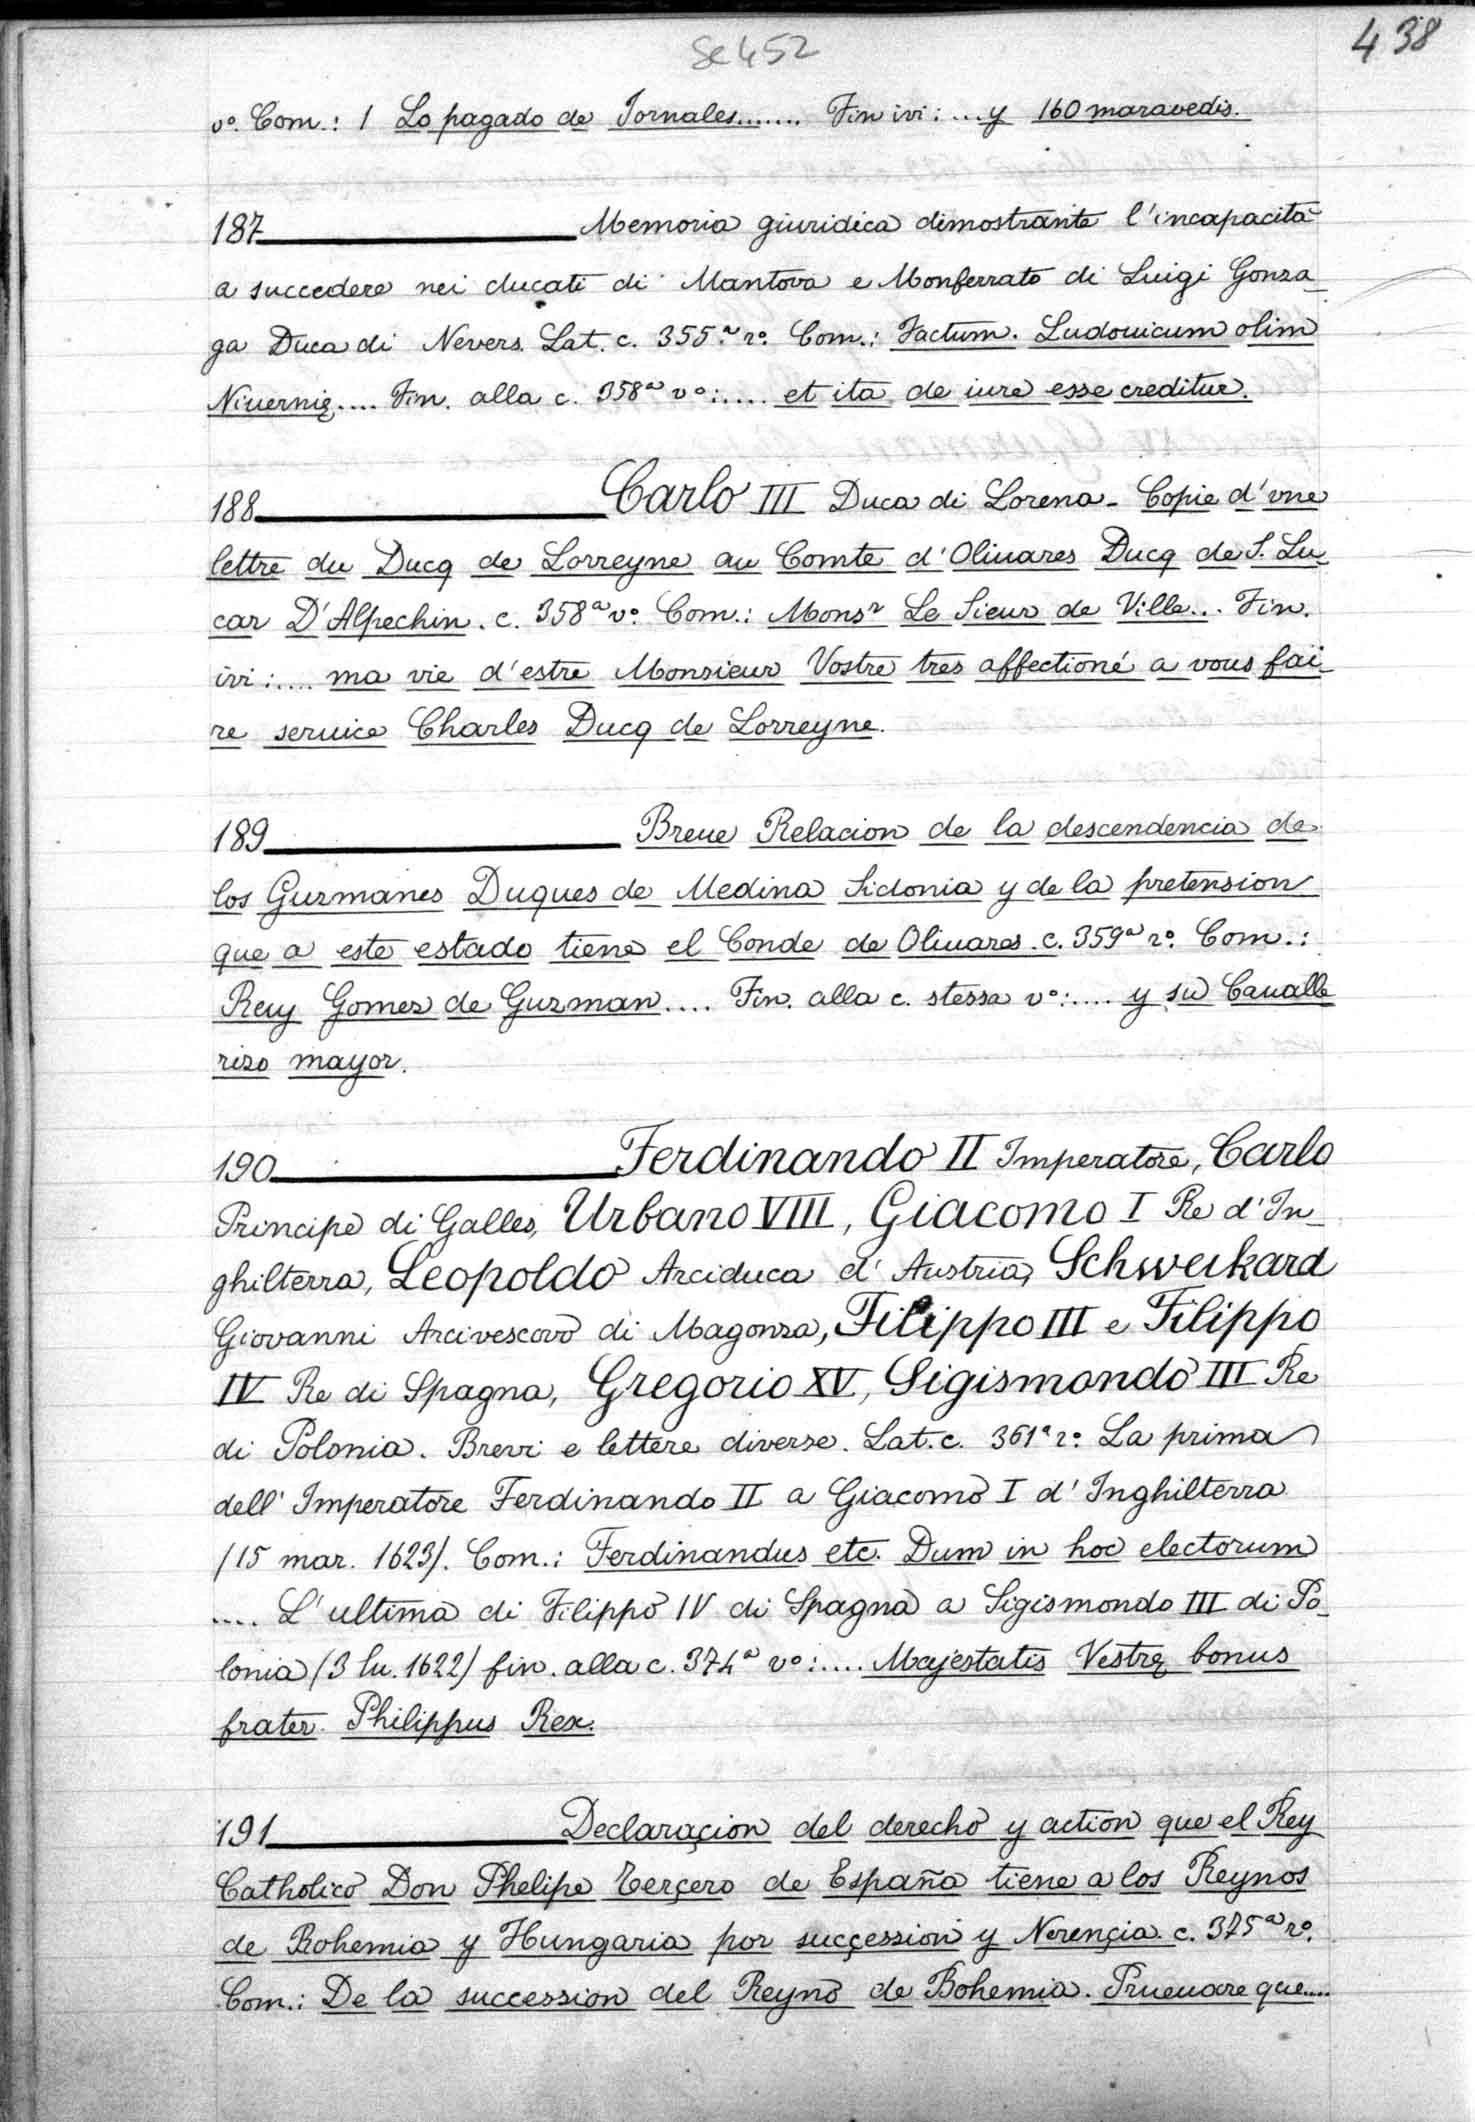 Se 452
438
vº. Com.: 1 Lo pagado de Jornales....... Fin ivi: ... y 160 maravedis.
187 Memoria giuridica dimostrante l'incapacità
a succedere nei ducati di Mantova e Monferrato di Luigi Gonza_
ga Duca di Nevers. Lat. c. 355.ª rº. Com.: Factum. Ludouicum olim
Niuernię.... Fin. alla c. 358ª vº:.... et ita de iure esse creditur.
188 Carlo III Duca di Lorena - Copie d'vne
lettre du Ducq de Lorreyne au Comte d'Oliuares Ducq de S. Lu_
car D'Alpechin. c. 358ª vº. Com.: Monsr Le Sieur de Ville... Fin.
ivi:.... ma vie d'estre Monsieur Vostre tres affectioné a vous fai_
re seruice Charles Ducq de Lorreyne.
189 Breue Relacion de la descendencia de
los Guzmanes Duques de Medina Sidonia y de la pretension
que a este estado tiene el Conde de Oliuares. c. 359ª rº. Com.:
Ruy Gomez de Guzman.... Fin. alla c. stessa vº:.... y su CauALLE
rizo mayor.
190 Ferdinando II Imperatore, Carlo
Principe di Galles, Urbano VIII, Giacomo I Re d'In_
ghilterra, Leopoldo Arciduca d'Austria, Schweikard
Giovanni Arcivescovo di Magonza, Filippo III e Filippo
IV Re di Spagna, Gregorio XV, Sigismondo III Re
di Polonia. Brevi e lettere diverse. Lat. c. 361ª rº. La prima
dell'Imperatore Ferdinando II a Giacomo I d'Inghilterra
(15 mar. 1623). Com.: Ferdinandus etc. Dum in hoc electorum
.... L'ultima di Filippo IV di Spagna a Sigismondo III di Po_
lonia (3 lu. 1622) fin. alla c. 374ª vº:.... Majestatis Vestrę bonus
frater. Philippus Rex.
191 Declaraçion del derecho y action que el Rey
Catholico Don Phelipe Terçero de España tiene a los Reynos
de Bohemia y Hungaria por sucçession y Nerençia. c. 375ª rº.
Com.: De la succession del Reyno de Bohemia. Prueuare que....